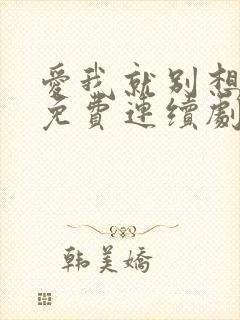 愛我就别想
免費連續劇
韩美嬌